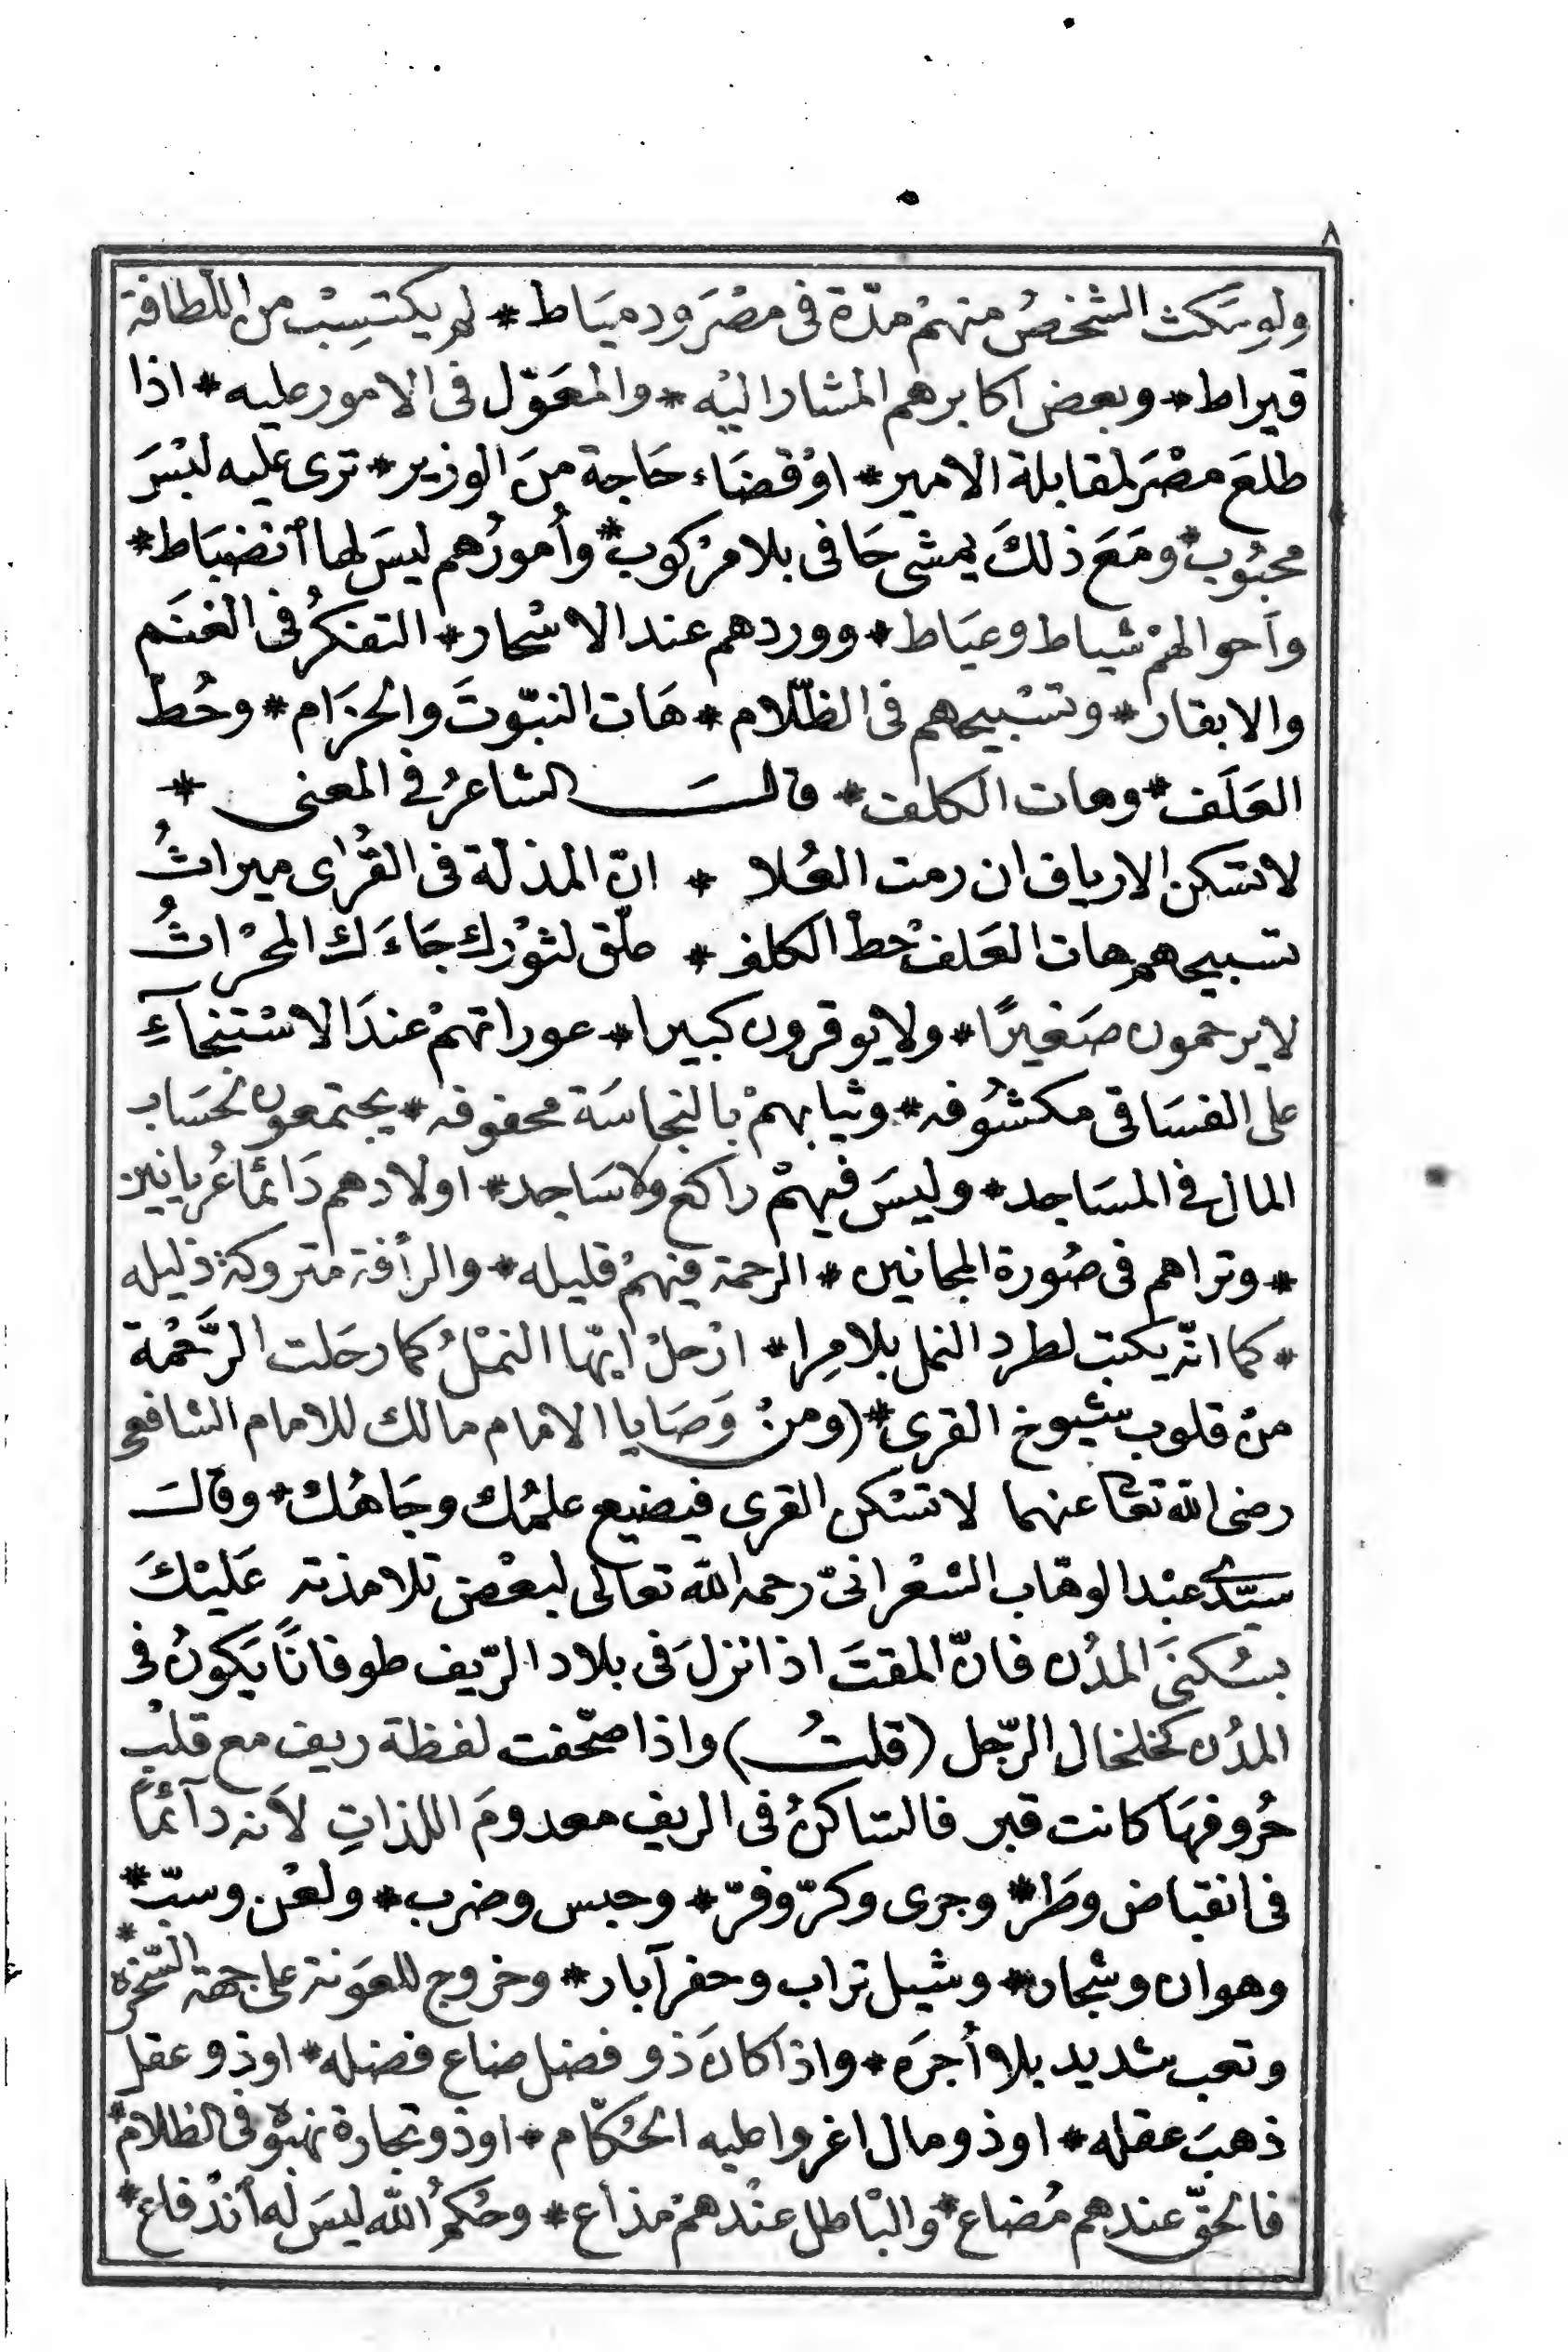 ٨
ولو سَكَث الشخصُ منهمْ مدّة فى مصْرَ ودميَاط * لم يكتسِبْ من اللّطافة
قيراط * وبعض اكابرهم المشار اليْه * والمعَوّل فى الامور عليه * اذا
طلعَ مصْرَ لمقابلة الامير * اوْ قضَاء حَاجة منَ الوزير * ترى عليه لبْسَ
محبُوب * ومَعَ ذلكَ يمشى حَافى بلا مرْكوب * وأمورُهم ليسَ لها أنضبَاط *
وآحوالهمْ شياط وعيَاط * ووردهم عند الاسْحار * التفكرُ فى الغنَم
والابقار * وتسْبيحهم فى الظّلام * هَات النبّوتَ والحزَام * وحُطّ
العَلَف * وهات الكلف * قالــَ الشاعرُ فى المعنى *
لا تسْكن الارياف ان رمت العُلا * انّ المذلّة فى القُرٰى ميراثُ
تسبيحهم هات العَلفْ حُطّ الكلف * علّق لثوْرك جَاءَك المحْراثُ
لا يرحمون صَغيرًا * ولا يوقرون كبيرا * عوراتهمْ عندَ الاسْتنجآءِ
على الفسَاقى مكشوُفه * وثيابهمْ بالنجاسَة محفوفه * يجتمعون لحسَاب
المال فى المسَاجد * وليسَ فيهمْ راكع ولا سَاجد * اولادهم دَائمًا عُريانين
* وتراهم فى صُورة المجانين * الرحمة فيهمْ قليله * والرأفة متروكة ذليله
* كما انّه يكتب لطرد النمل بلا مِرا * ارْحلْ ايّها النمْلُ كما رحَلت الرَّحْمة
منْ قلوب شيوخ القرى * (ومنْ وَصَايا الامَام مالك للامام الشافعى
رضى الله تعا عنهما لا تسْكن القرى فيضيع علمُك وجَاهُك * وقالَ
سيّدى عبْد الوهّاب الشعْرانىّ رحمه الله تعالى لبعْض تلامذته عَليْكَ
بسُكنَى المدُن فانّ المقتَ اذا نزلَ فى بلاد الرّيف طوفانًا يَكونُ فى
المدُن كخلخال الرّجل (قلتُ) واذا صحّفت لفظة ريف مع قلبْ
حُروفهَا كانت قبر فالسّاكنُ فى الريف معدومَ اللذاتِ لأنه دآئمًا
فى انقباض وطَر * وجرى وكرّ وفرّ * وحبس وضرب * ولعْن وسبّ *
وهوان وشجار * وشيل تراب وحفر آبار * وخروج للعَونة على جهة السّخره *
وتعب شديد بلا أجرَه * واذا كانَ ذو فضل ضاع فضله * او ذو عقل
ذهبَ عقله * او ذو مال اغروا عليه الحُكّام * او ذو تجارة نهبوُه فى الظلام *
فالحقّ عندهم مُضاع * والبْاطل عنْدهمْ مذاع * وحُكمُ الله ليسَ له أندْفاع *